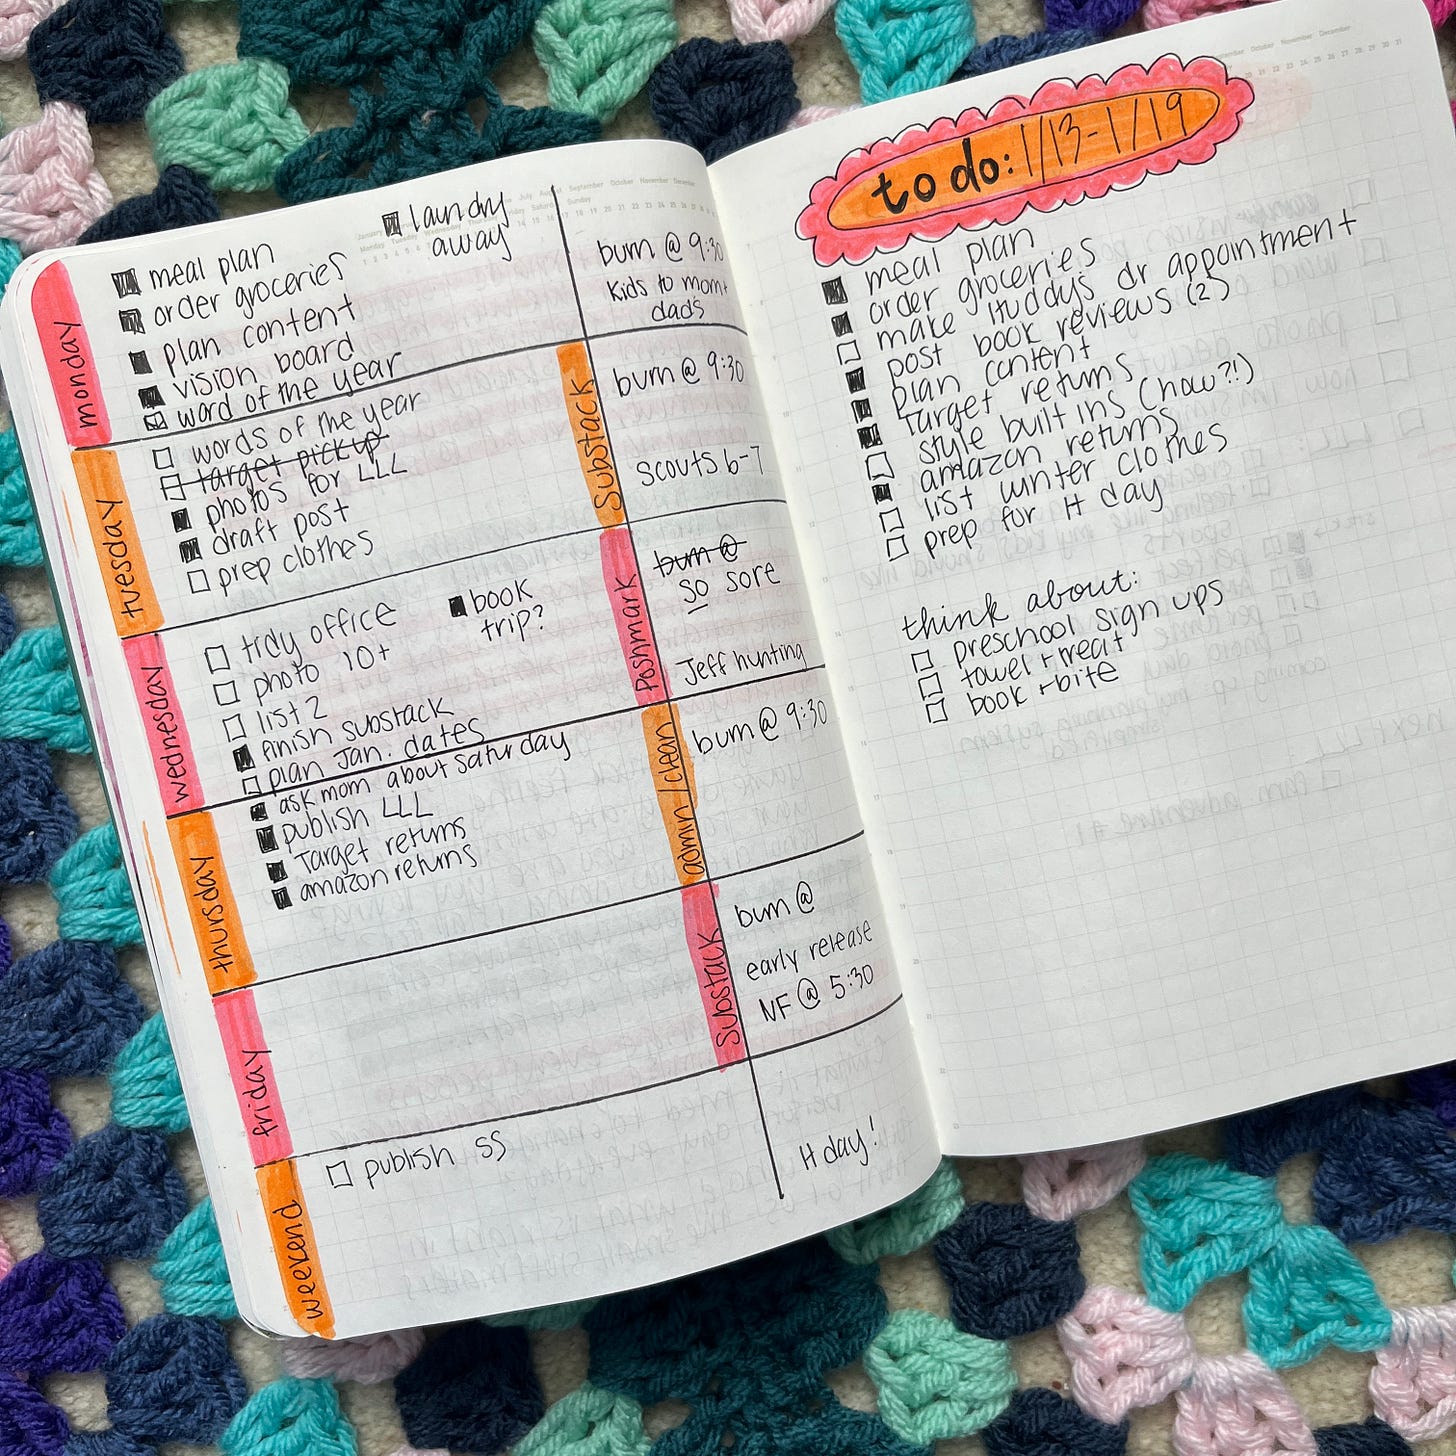 monday
meal plan
order groceries
plan content
vision board
word of the year
laundry
away
burn @ 9:30
Kids to mom +
dad's
tuesday
words of the year
target pick up
photos for LLL
draft post
prep clothes
Substack
burn @ 9:30
Scouts 6-7
wednesday
tidy office
photo 10+
list 2
finish substack
plan Jan. dates
book
trip?
Poshmark
burn @
so sore
Jeff hunting
thursday
ask mom about saturday
publish LLL
Target returns
amazon returns
admin/clean
burn @ 9:30
friday
Substack
burn @
early release
NF @ 5:30
weekend
publish SS
H day!
to do: 1/13-1/19
meal plan
order groceries
make dr appointment
post book reviews (2)
plan content
Target returns
style built ins (how?!)
amazon returns
list winter clothes
prep for H day
think about:
preschool sign ups
towel + treat
book + bite